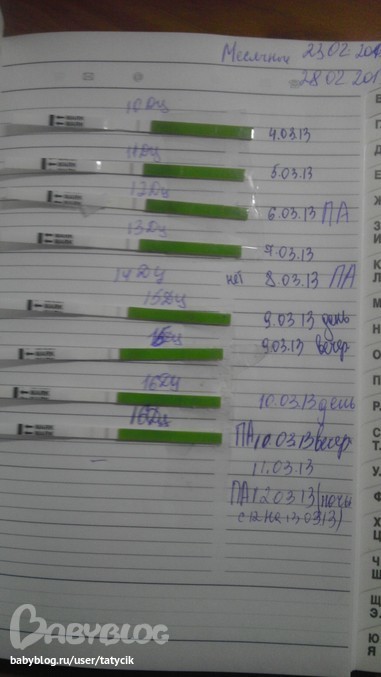 Месячные 23.02.201
28.02.201
10 ДЦ
4.03.13
11 ДЦ
5.03.13
12 ДЦ
6.03.13 ПА
13 ДЦ
7.03.13
14 ДЦ нет 8.03.13 ПА
15 ДЦ
9.03.13 день
15 ДЦ
9.03.13 вечер
16 ДЦ
10.03.13 день
16 ДЦ
ПА 10.03.13 вечер
11.03.13
ПА 12.03.13 (ночь
с 12 на 13.03.13)
Е
Ж
З
И
К
Л
М
Н
О
П
Р
С
Т
У
Ф
Х
Ц
Ч
Ш
Щ
Э
Ю
Я
BABYBLOG
babyblog.ru/user/tatycik